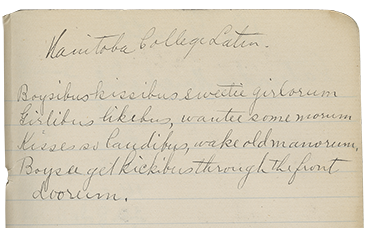 Manitoba College Latin.
Boysibus kissibus sweetie girlorum
Girlibus likibus, wantee some morum
Kisses so loudibus, wake old manorum,
Boysee get kickibus through the front
doorum.